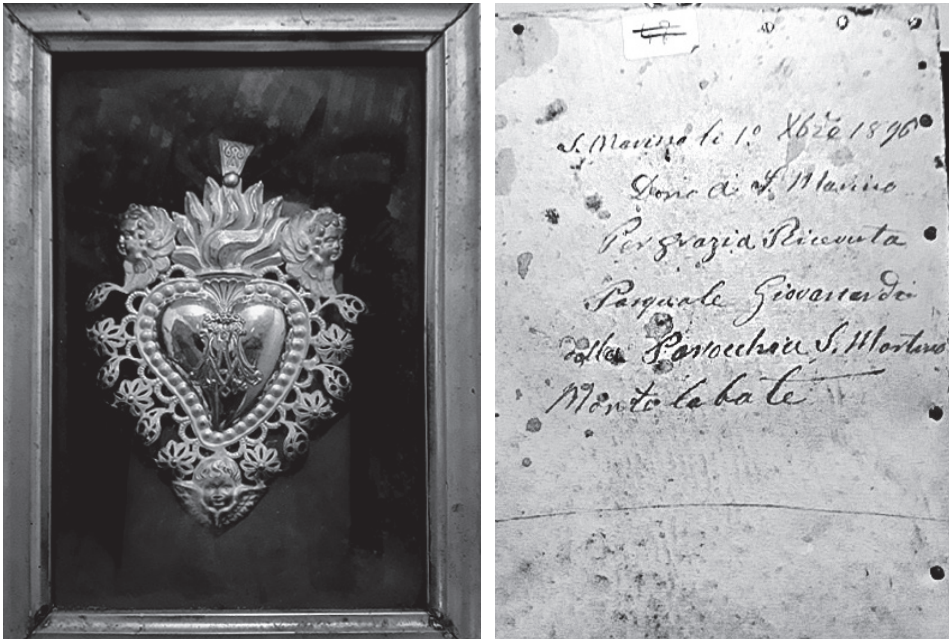 S. Marino li 1º Xbre 1896
Dono a S. Marino
Per grazia Ricevuta
Pasquale Giovanardi
della Parocchia S. Martino
Montelabate